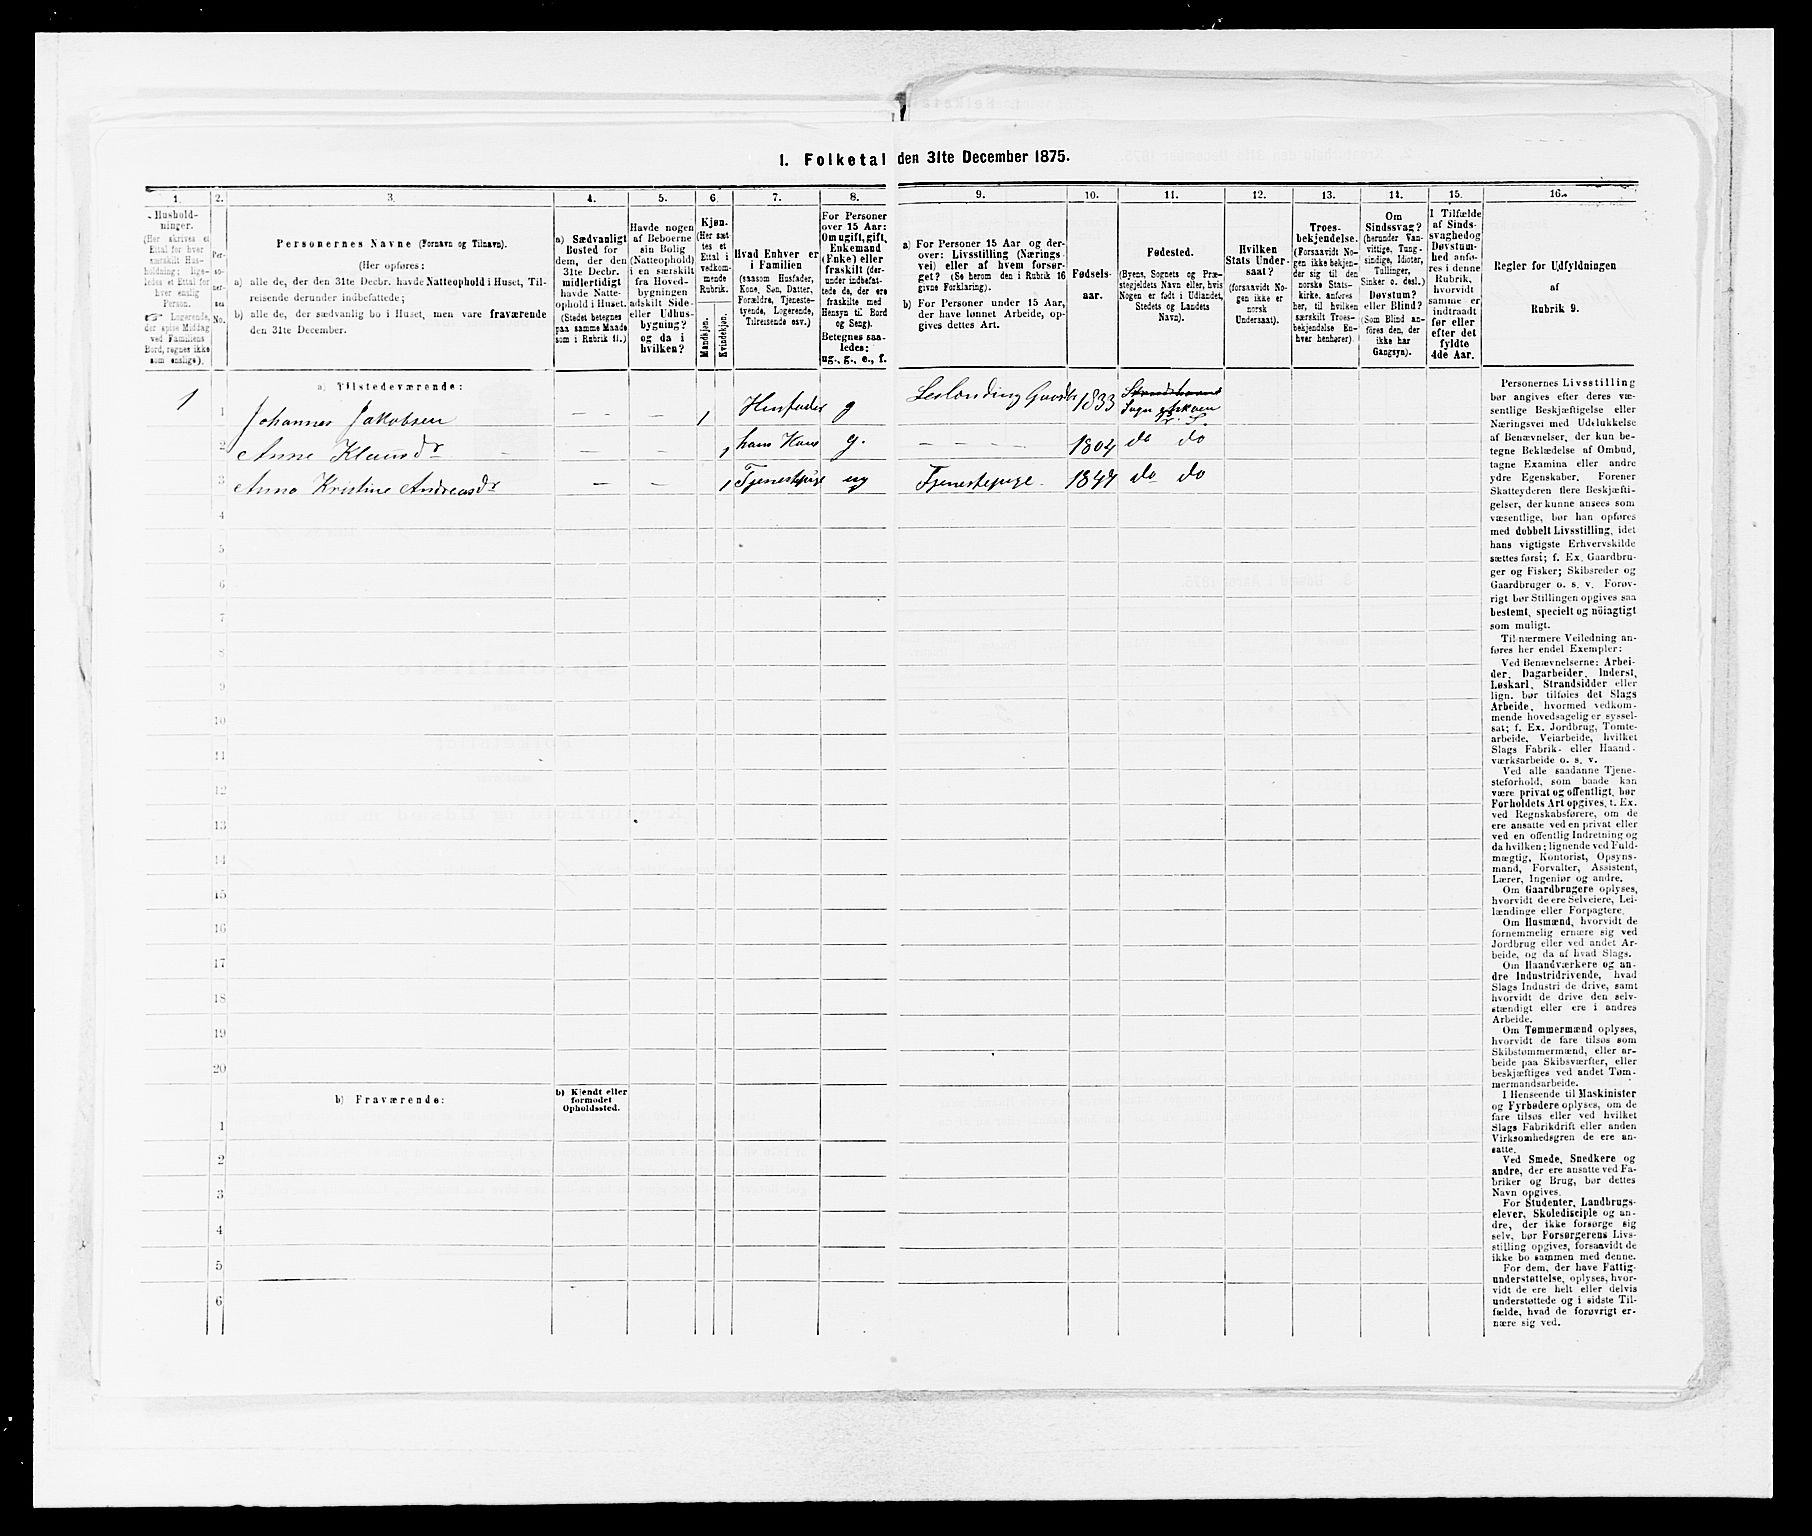 1. Folketal den 31te December 1875.
1.
2.
3.
4.
5.
6.
7.
8.
9.
10.
11.
12.
13.
14.
15.
16.
Hushold-
ninger.
(Her skrives et
Ettal for hver
særskilt Hus-
holdning; lige-
ledes et Ettal for
hver enslig
Person.
Logerende,
der spise Middag
ved Familiens
Bord, regnes ikke
som enslige).
Per-
so-
ner-
nes
No.
Personernes Navne (Fornavn og Tilnavn).
(Her opføres:
a) alle de, der den 31te Decbr. havde Natteophold i Huset, Til-
reisende derunder indbefattede;
b) alle de, der sædvanlig bo i Huset, men vare fraværende
den 31te December.
a) Sædvanligt
Bosted for
dem, der den
31te Decbr.
midlertidigt
havde Natte-
ophold i Huset.
(Stedet betegnes
paa samme Maade
som i Rubrik 11.)
Havde nogen
af Beboerne
sin Bolig
(Natteophold)
i en særskilt
fra Hoved-
bygningen
adskilt Side-
eller Udhus-
bygning?
og da i
hvilken?
Kjøn.
(Her sæt
tes et
Ettal i
vedkom-
mende
Rubrik.
Mandkjøn.
Kvindekjøn.
Hvad Enhver er
i Familien
(saasom Husfader,
Kone, Søn, Datter,
Forældre, Tjeneste-
tyende, Logerende,
Tilreisende osv.)
For Personer
over 15 Aar:
Om ugift, gift,
Enkemand
(Enke) eller
fraskilt (der-
under indbefat-
tede de, der ere
fraskilte med
Hensyn til Bord
og Seng).
Betegnes saa-
ledes:
ug., g., e., f.
a) For Personer 15 Aar og der-
over: Livsstilling (Nærings-
vei) eller af hvem forsør-
get? (Se herom den i Rubrik 16
givne Forklaring).
b) For Personer under 15 Aar,
der have lønnet Arbeide, op-
gives dettes Art.
Fødsels-
aar.
Fødested.
(Byens, Sognets og Præ-
stegjeldets Navn eller, hvis
Nogen er født i Udlandet,
Stedets og Landets
Navn).
Hvilken
Stats Under-
saat?
(forsaavidt No-
gen ikke er
norsk
Undersaat).
Troes-
bekjendelse.
(Forsaavidt No-
gen ikke bekjen-
der sig til den
norske Stats-
kirke, anføres
her, til hvilken
særskilt Troes-
bekjendelse En-
hver henhører).
Om
Sindssvag?
(herunder Van-
vittige, Tung-
sindige, Idioter,
Tullinger,
Sinker o. desl.)
Døvstum?
eller Blind?
(Som Blind an-
føres den, der
ikke har
Gangsyn).
I Tilfælde
af Sinds-
svaghed og
Døvstum-
hed anfø-
res i denne
Rubrik,
hvorvidt
samme er
indtraadt
før eller
efter det
fyldte
4de Aar.
Regler for Udfyldningen
af
Rubrik 9.
a) Tilstedeværende:
1 1 Johannes Jakobsen — — 1 Husfader g 1833 Sogn
2 Anne Klausdr — — 1 hans Kone g. — — — 1804 do do
3 Anna Kristine Andreasdr — — 1 Tjenestepige ug Tjenestepige. 1847 do do
4
5
6
7
8
9
10
11
12
13
14
15
16
17
18
19
20
b) Fraværende:
b) Kjendt eller
formodet
Opholdssted.
1
2
3
4
5
6
Personernes Livsstilling
bør angives efter deres væ-
sentlige Beskjæftigelse eller
Næringsvei med Udelukkelse
af Benævnelser, der kun be-
tegne Beklædelse af Ombud,
tagne Examina eller andre
ydre Egenskaber. Forener
Skatteyderen flere Beskjæfti-
gelser, der kunne ansees som
væsentlige, bør han opføres
med dobbelt Livsstilling, idet
hans vigtigste Erhvervskilde
sættes først; f. Ex. Gaardbru-
ger og Fisker; Skibsreder og
Gaardbruger o. s. v. Forøv-
rigt bør Stillingen opgives saa
bestemt, specielt og nöiagtigt
som muligt.
Til nærmere Veiledning an-
føres her endel Exempler:
Ved Benævnelserne: Arbei-
der, Dagarbeider, Inderst,
Løskarl, Strandsidder eller
lign. bør tilføies det Slags
Arbeide, hvormed vedkom-
mende hovedsagelig er syssel-
sat; f. Ex. Jordbrug, Tomte-
arbeide, Veiarbeide, hvilket
Slags Fabrik- eller Haand-
værksarbeide o. s. v.
Ved alle saadanne Tjene-
steforhold, som baade kan
være privat og offentligt, bør
Forholdets Art opgives, t. Ex.
ved Regnskabsførere, om de
ere ansatte ved en privat eller
ved en offentlig Indretning og
da hvilken; lignende ved Fuld-
mægtig, Kontorist, Opsyns-
mand, Forvalter, Assistent,
Lærer, Ingeniør og andre.
Om Gaardbrugere oplyses,
hvorvidt de ere Selveiere, Lei-
lændinge eller Forpagtere.
Om Husmænd, hvorvidt de
fornemmelig ernære sig ved
Jordbrug eller ved andet Ar-
beide, og da af hvad Slags.
Om Haandværkere og an-
dre Industridrivende, hvad
Slags Industri de drive, samt
hvorvidt de drive den selv-
stændigt eller ere i andres
Arbeide.
Om Tømmermænd oplyses,
hvorvidt de fare tilsøs som
Skibstømmermænd, eller ar-
beide paa Skibsværfter, eller
beskjæftiges ved andet Tøm-
mermandsarbeide.
I Henseende til Maskinister
og Fyrbødere oplyses, om de
fare tilsøs eller ved hvilket
Slags Fabrikdrift eller anden
Virksomhedsgren de ere an-
satte.
Ved Smede, Snedkere og
andre, der ere ansatte ved Fa-
briker og Brug, bør dettes
Navn opgives.
For Studenter, Landbrugs-
elever, Skoledisciple og an-
dre, der ikke forsørge sig
selv, bør Forsørgerens Livs-
stilling opgives, forsaavidt de
ikke bo sammen med denne.
For dem, der have Fattig-
understøttelse, oplyses, hvor-
vidt de ere helt eller delvis
understøttede og i sidste Til-
fælde, hvad de forøvrigt er-
nære sig ved.